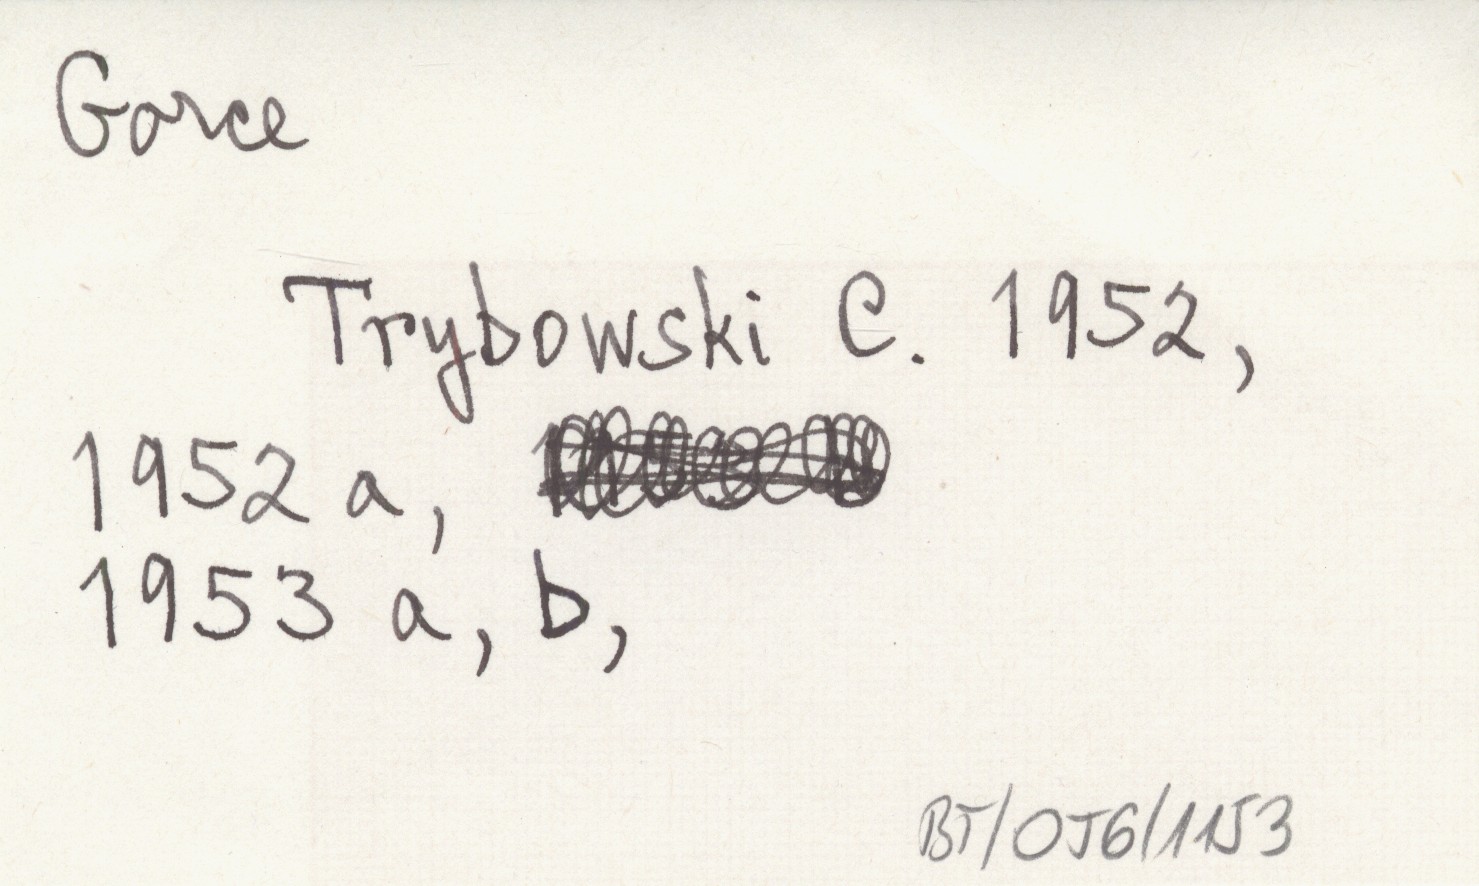 Gorce
Trybowski C. 1952,
1952 a,
1953 a, b,
BT/OJG/1153